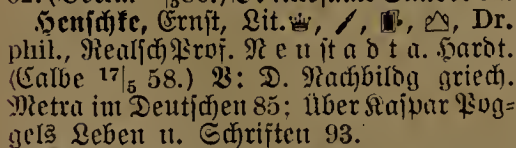 Henschke, Ernst, Lit. Dr.
phil., RealschProf. Neustadt a. Hardt.
(Calbe 17/5 58.) V: D. Nachbildg griech.
Metra im Deutschen 85; Über Kaspar Pog-
gels Leben u. Schriften 93.